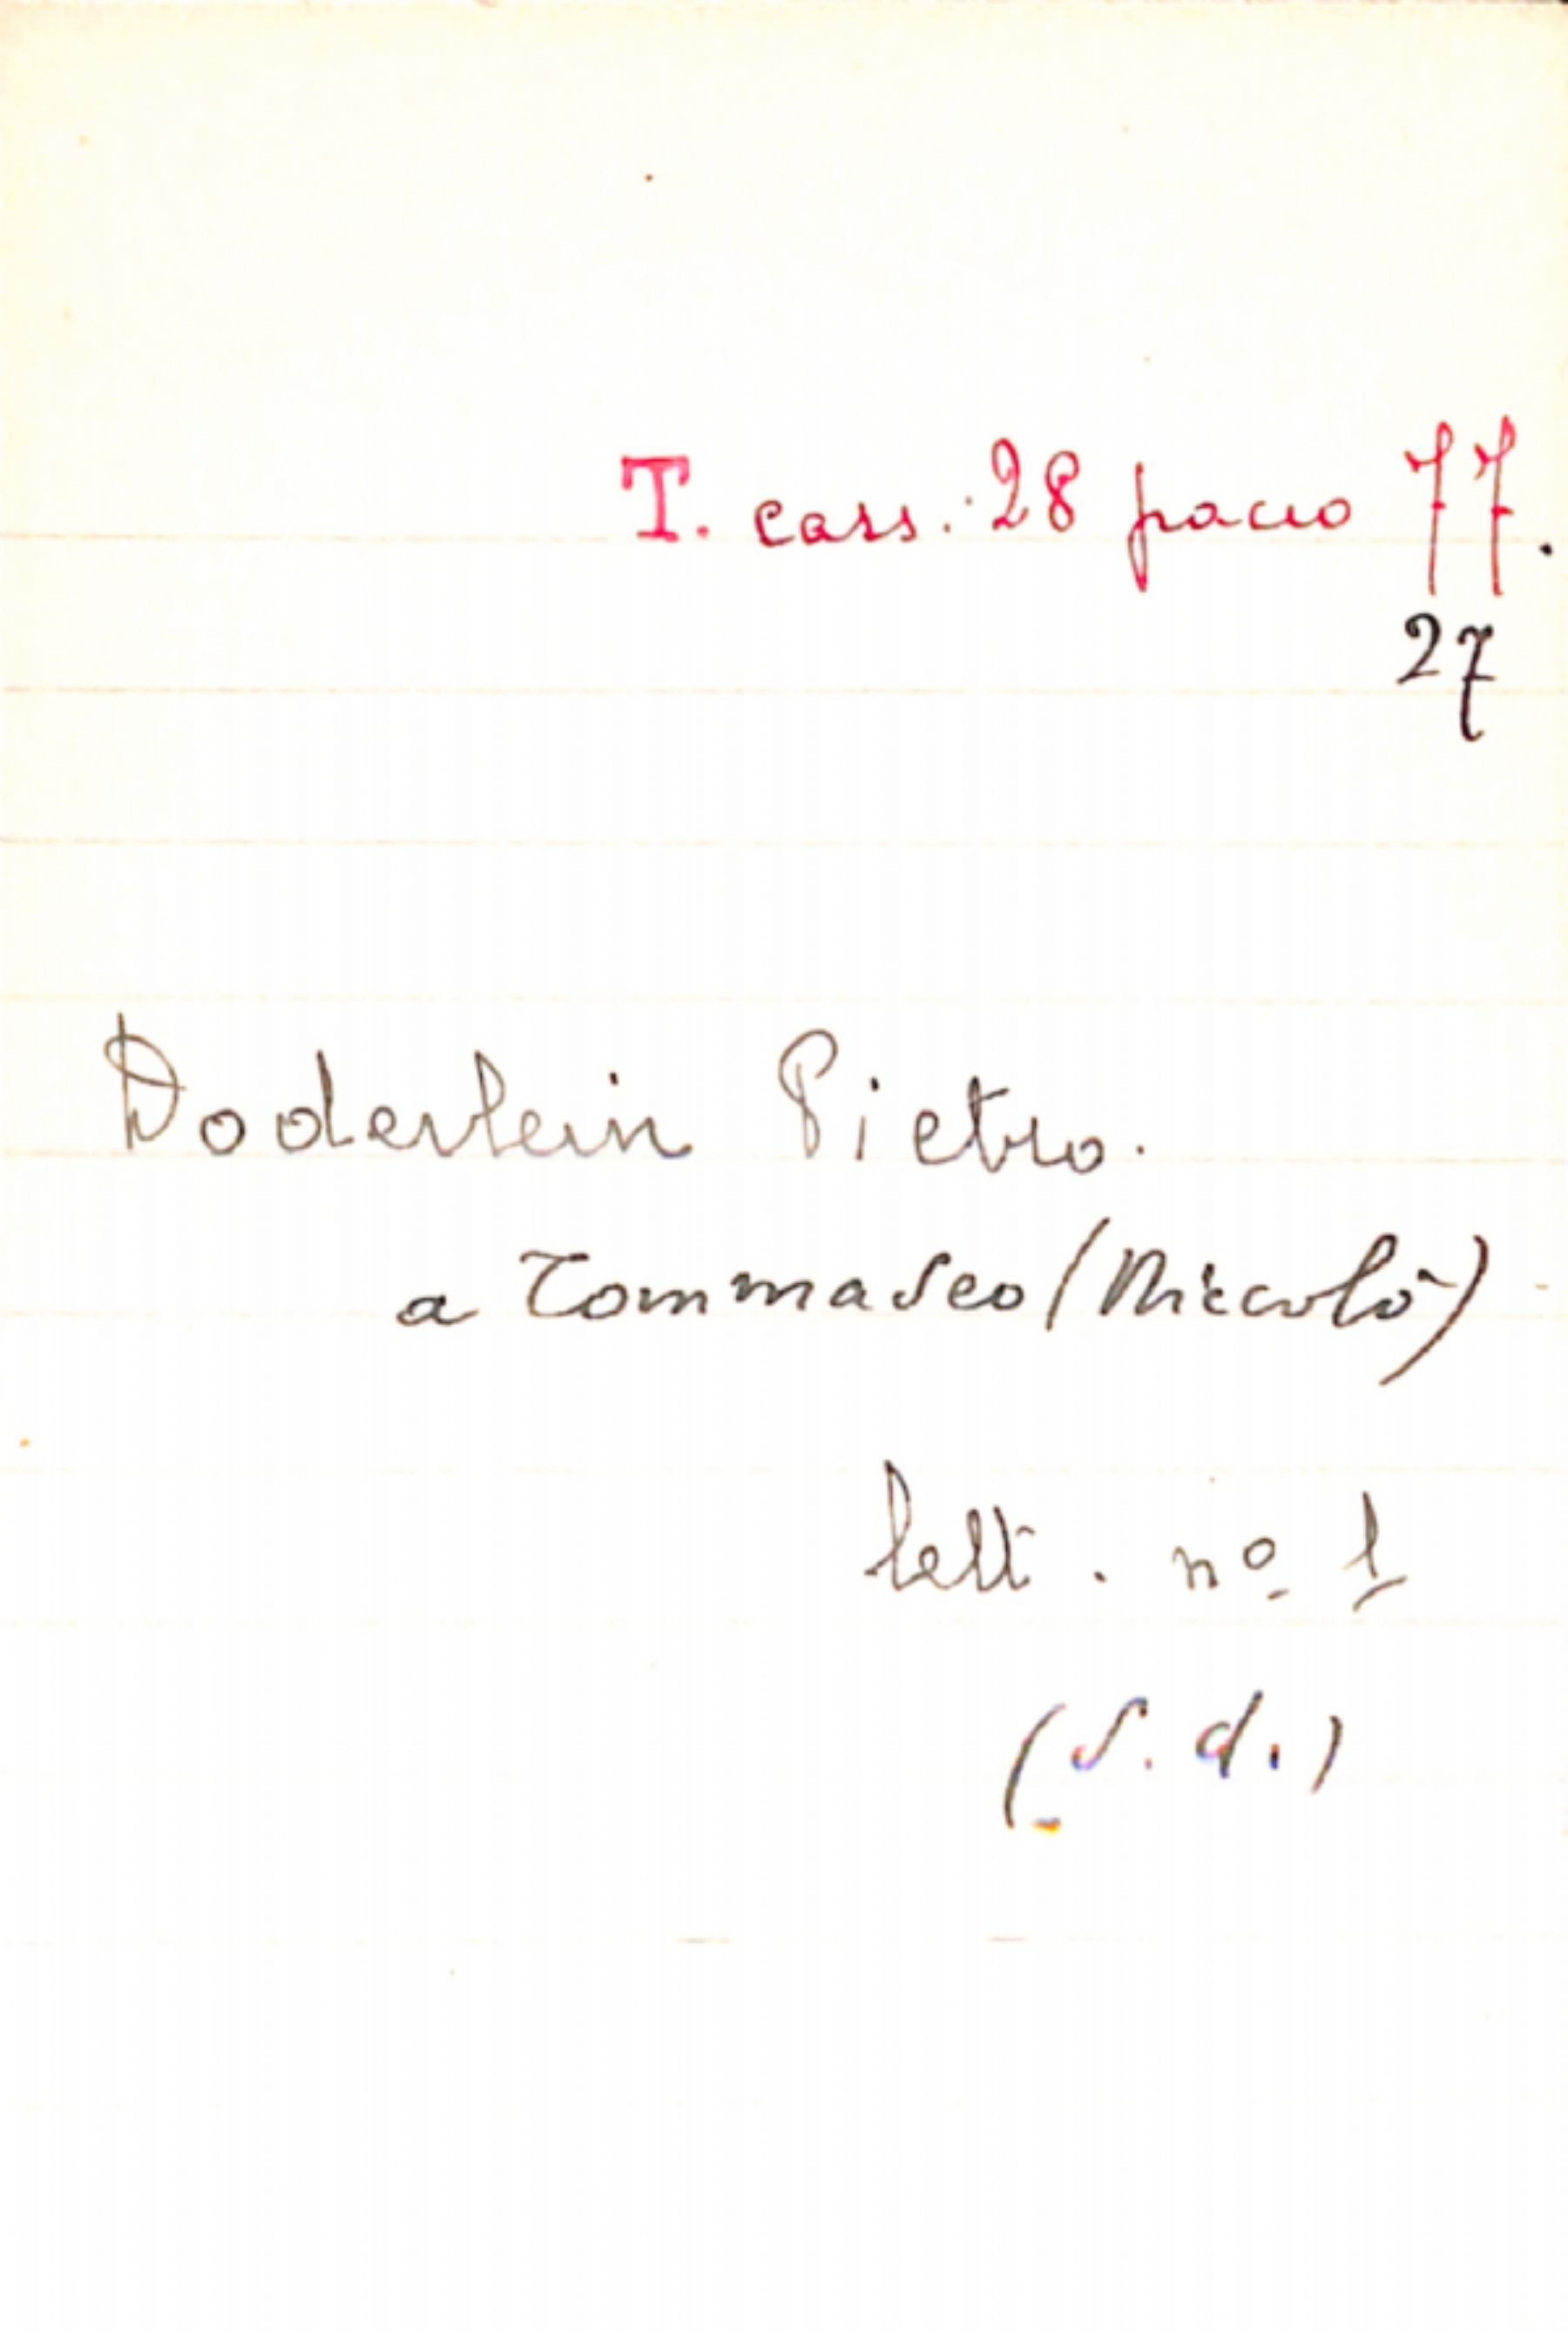 T. cass. 28 pacco 77.
27
Doderlein Pietro.
a Tommaseo (Niccolò)
lett. nº 1
(s. d.)